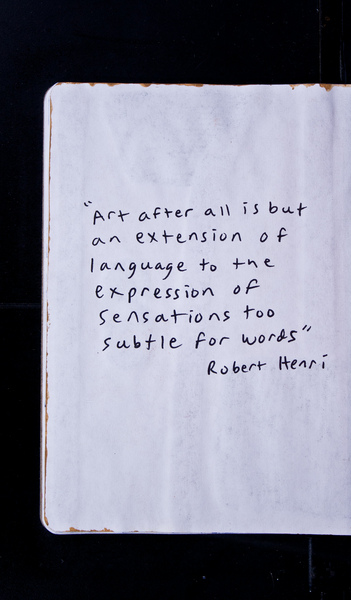 "Art after all is but
an extension of
language to the
expression of
sensations too
subtle for words"
Robert Henri